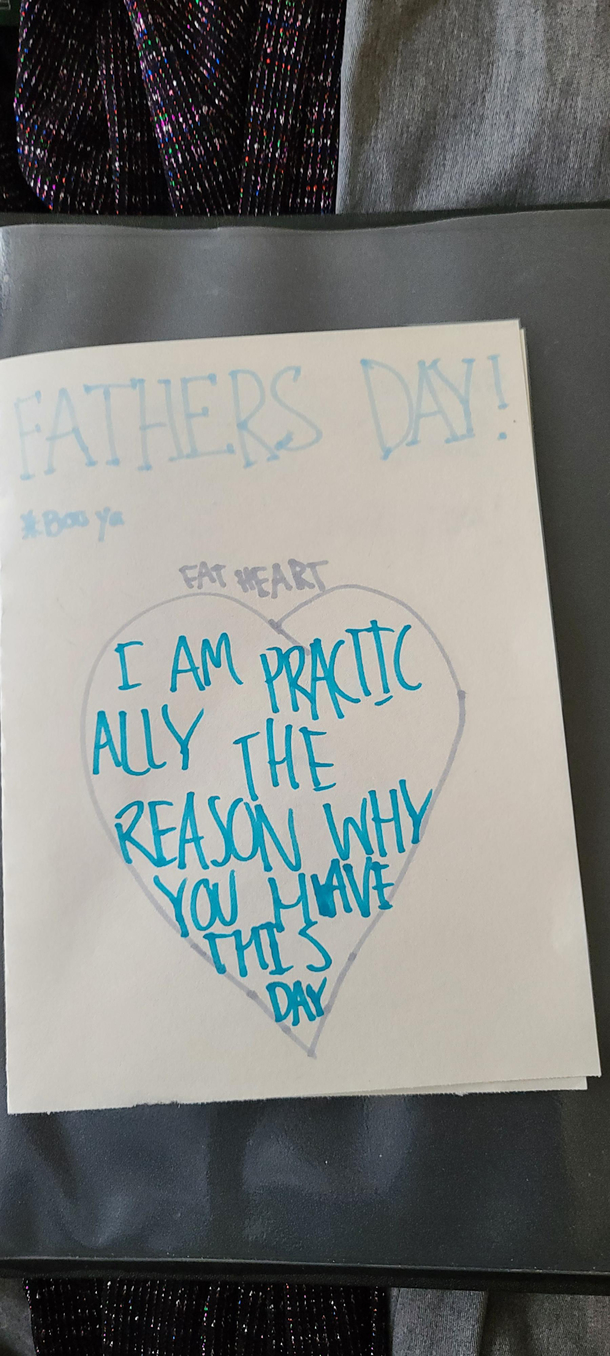 FATHERS DAY!
*Boo Ya
FAT HEART
I AM PRACTIC
ALLY THE
REASON WHY
YOU HAVE
THIS
DAY